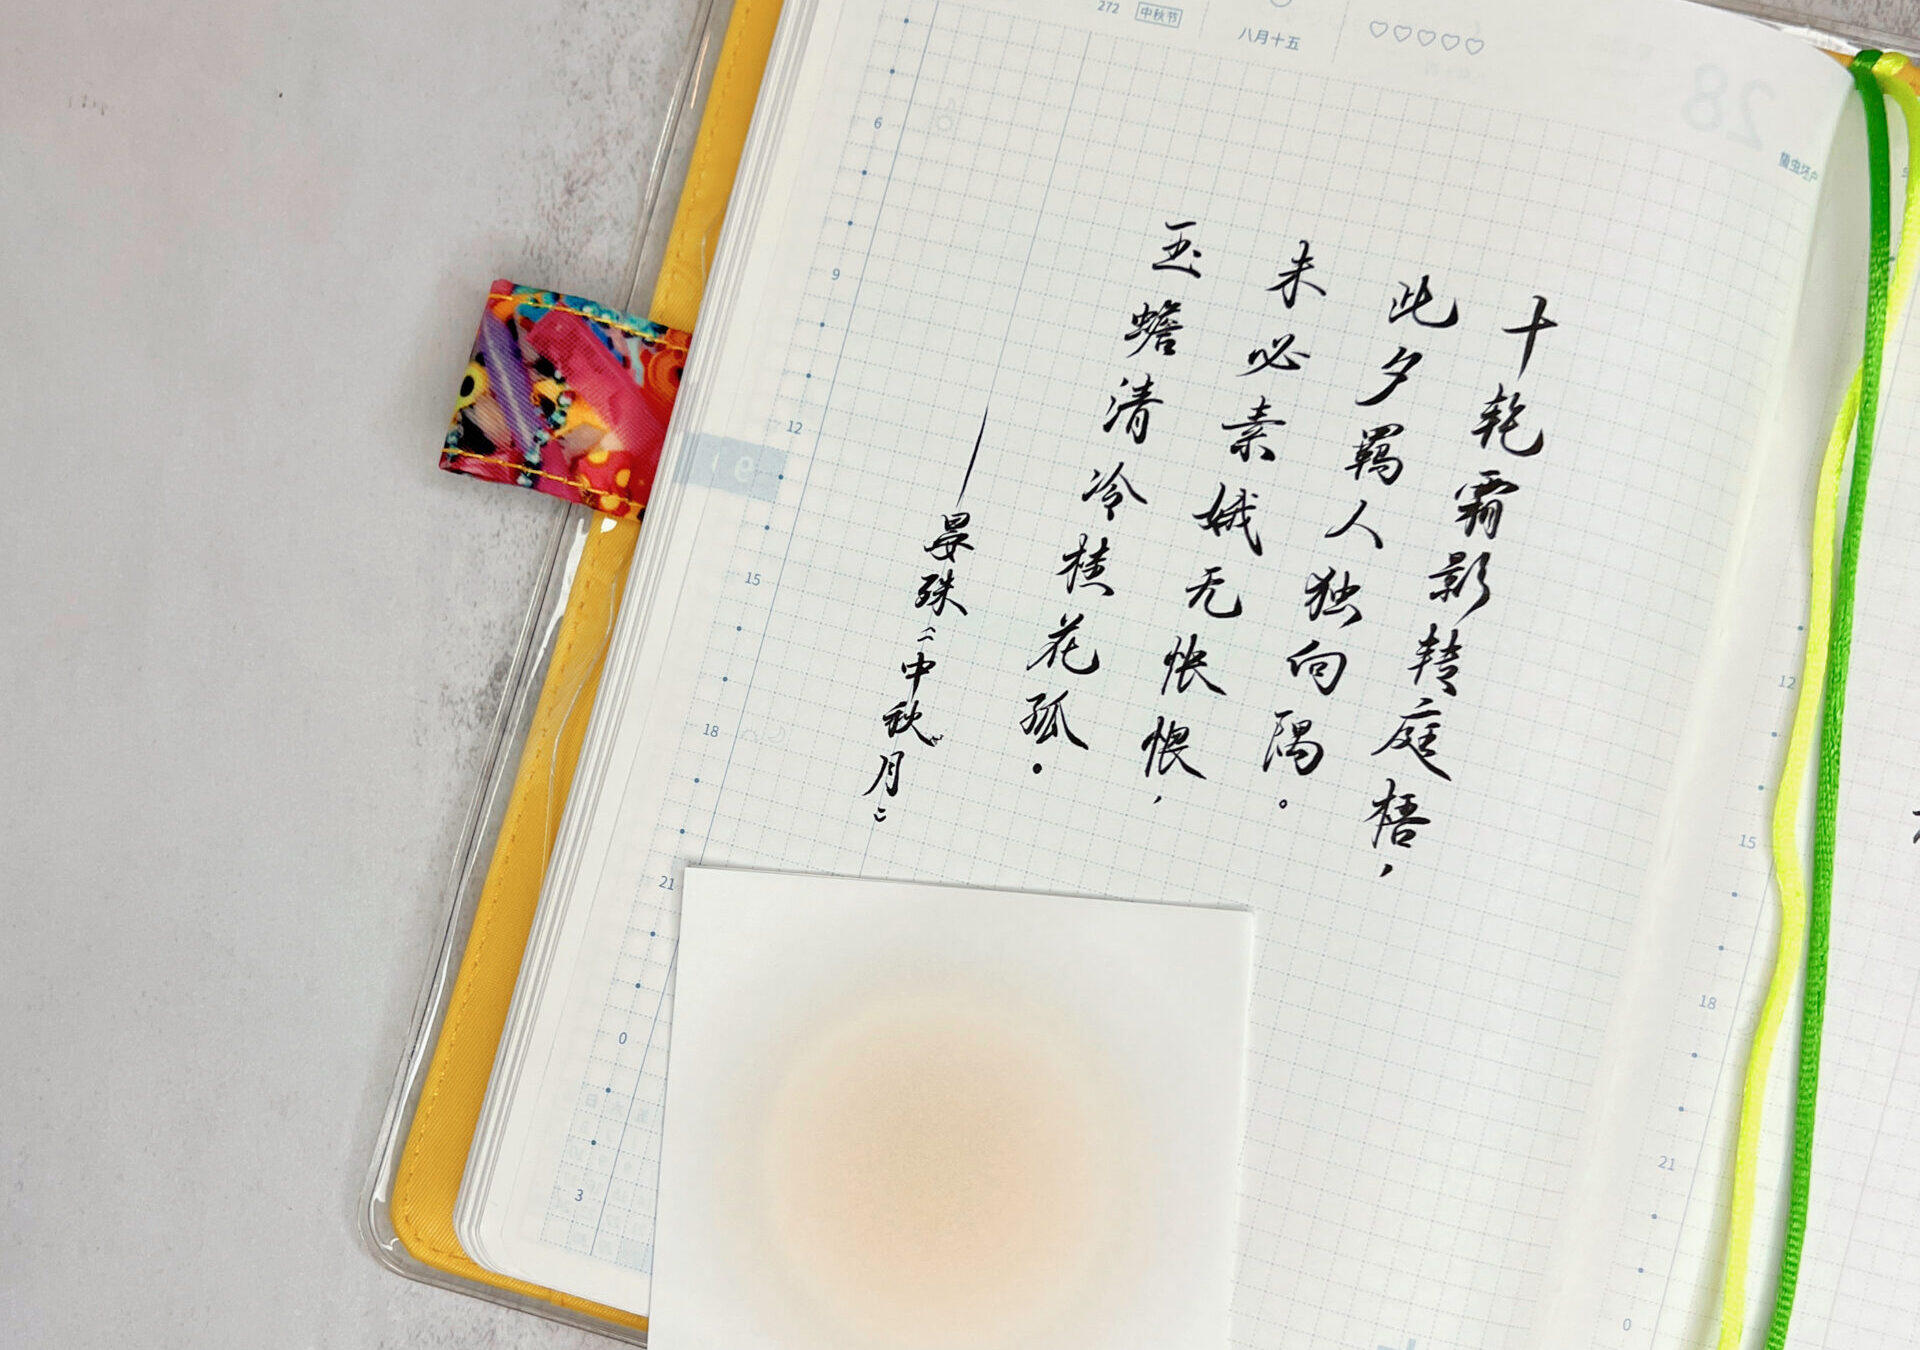 272 中秋节
八月十五
蛰虫坯户
十轮霜影转庭梧，
此夕羁人独向隅。
未必素娥无怅恨，
玉蟾清冷桂花孤。
——晏殊《中秋月》
6
9
12
15
18
21
0
3
12
15
18
21
0